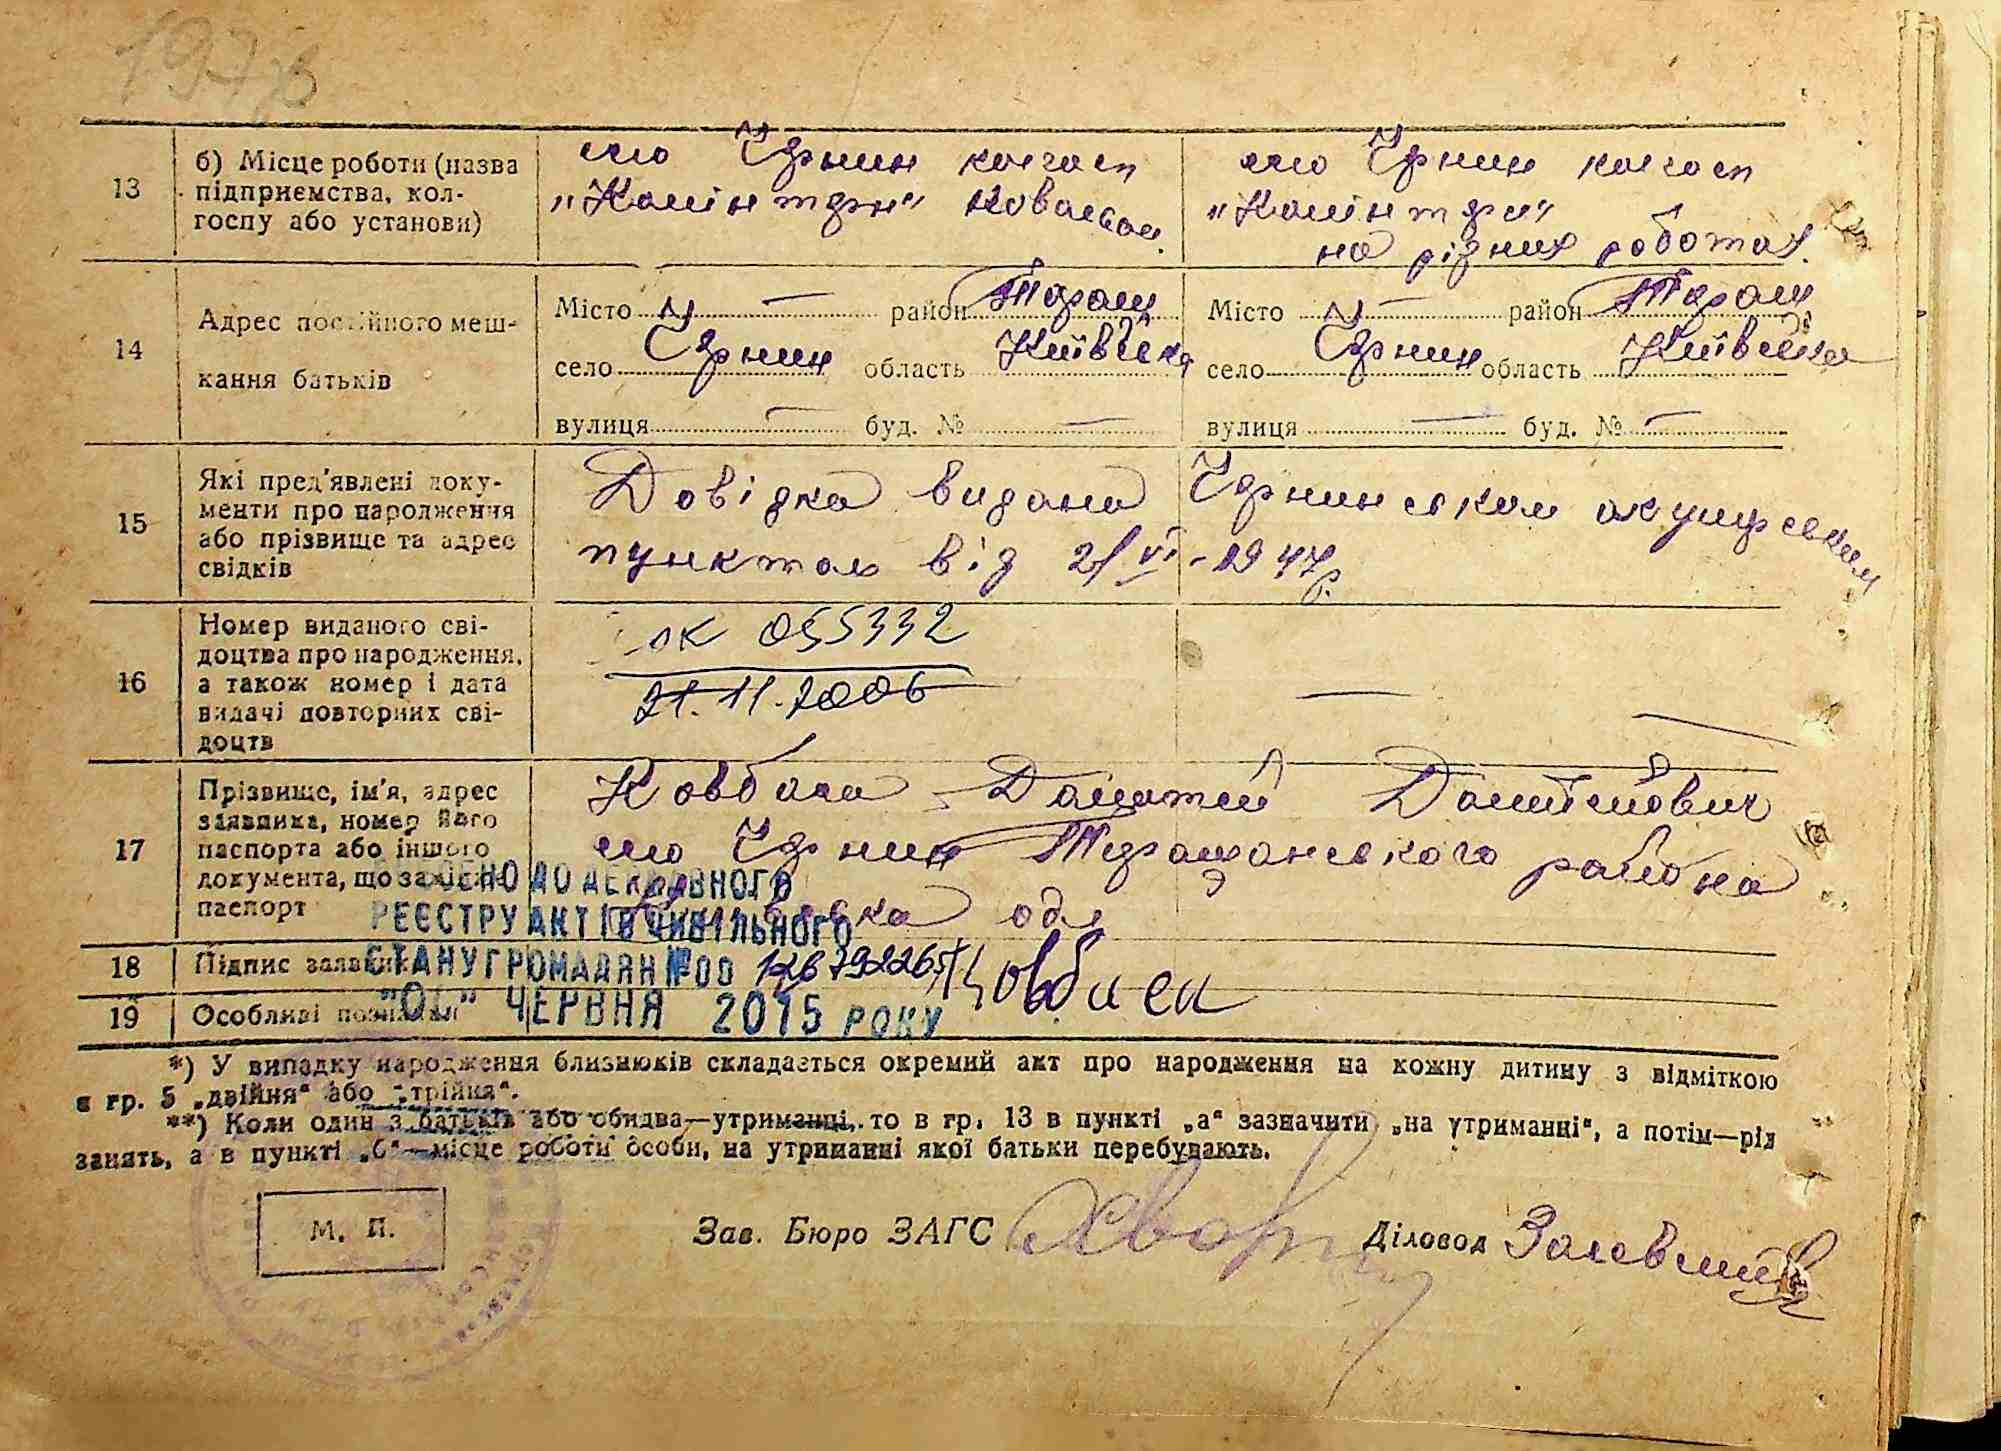 197
13
б) Місце роботи (назва
підприємства, кол-
госпу або установи)
село Чернин колгосп
„Комінтерн" ковалем.
село Чернин колгосп
„Комінтерн"
на різних роботах.
14
Адрес постійного меш-
кання батьків
Місто — район Тараш
село Чернин область Київська
вулиця — буд. № —
Місто — район Тараш
село Чернин область Київська
вулиця — буд. № —
15
Які пред'явлені доку-
менти про народження
або прізвище та адрес
свідків
Довідка видана Чернинським акушерским
пунктом від 21/VI-1947р.
16
Номер виданого сві-
доцтва про народження,
а також номер і дата
видачі повторних сві-
доцтв
ОК 055332
21.11.2006
—
—
17
Прізвище, ім'я, адрес
заявника, номер його
паспорта або іншого
документа, що
паспорт
Ковбаса
село Чернин Таращанського района
обл
ДО ДЕРЖАВНОГО
РЕЄСТРУ АКТІВ ЦИВІЛЬНОГО
СТАНУ ГРОМАДЯН №00
ЧЕРВНЯ 2015 РОКУ
18
Підпис заявника
Ковбаса
19
Особливі
*) У випадку народження близнюків складається окремий акт про народження на кожну дитину з відміткою
в гр. 5 „двійня" або „трійня".
**) Коли один з батьків або обидва—утриманці, то в гр. 13 в пункті „а" зазначити „на утриманці", а потім—рід
занять, а в пункті „б"—місце роботи особи, на утриманні якої батьки перебувають.
М. П.
Зав. Бюро ЗАГС
Діловод